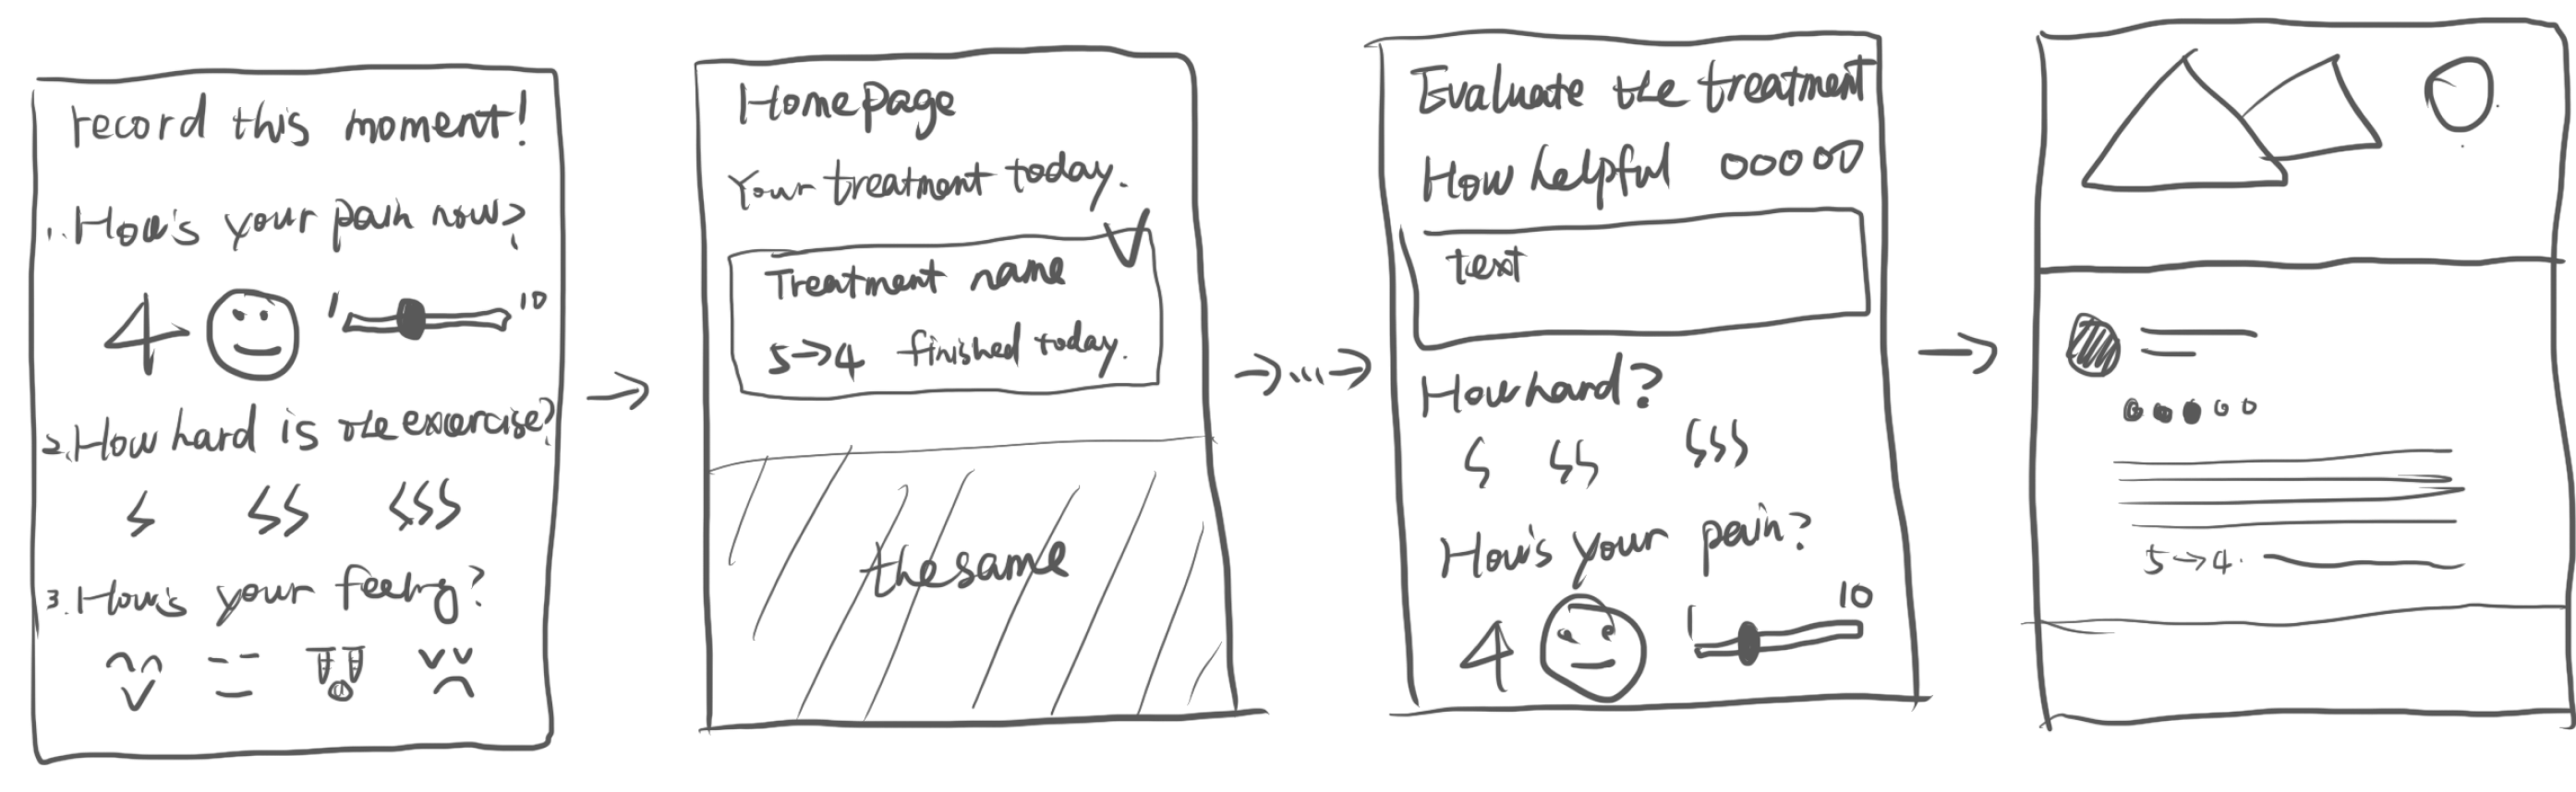 record this moment!
1. How's your pain now?
4 1 10
2. How hard is the exercise?
3. How's your feeling?
Homepage
Your treatment today.
Treatment name
5→4 finished today.
the same
Evaluate the treatment
How helpful
text
How hard?
How's your pain?
4 1 10
5→4.